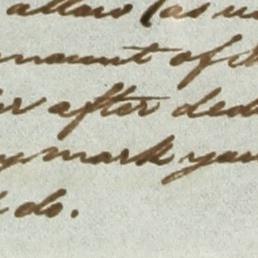 allow (as u
mount of
after ded
y mark you
do.